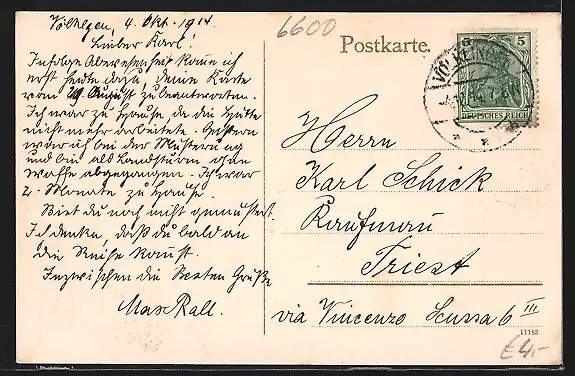 Völklingen, 4. Okt. 1914
Lieber Karl!
Infolge Abwesenheit komme ich
erst heute dazu, deine Karte
vom 19 August zu beantworten.
Ich war zu Hause, da die Hütte
nicht mehr arbeitete. Gestern
war ich bei der Musterung
und bin als Landsturm ohne
Waffe abgegangen. Ich war
2 Monate zu Hause.
Bist du noch nicht gemustert.
Ich denke, daß du bald an
die Reihe kommst.
Inzwischen die besten Grüße
Max Rall.
6600
Postkarte.
5
VÖLKLINGEN
DEUTSCHES REICH
Herrn
Karl Schick
Kaufmann
Triest
via Vincenzo Scussa 6 III
11183
€4,-